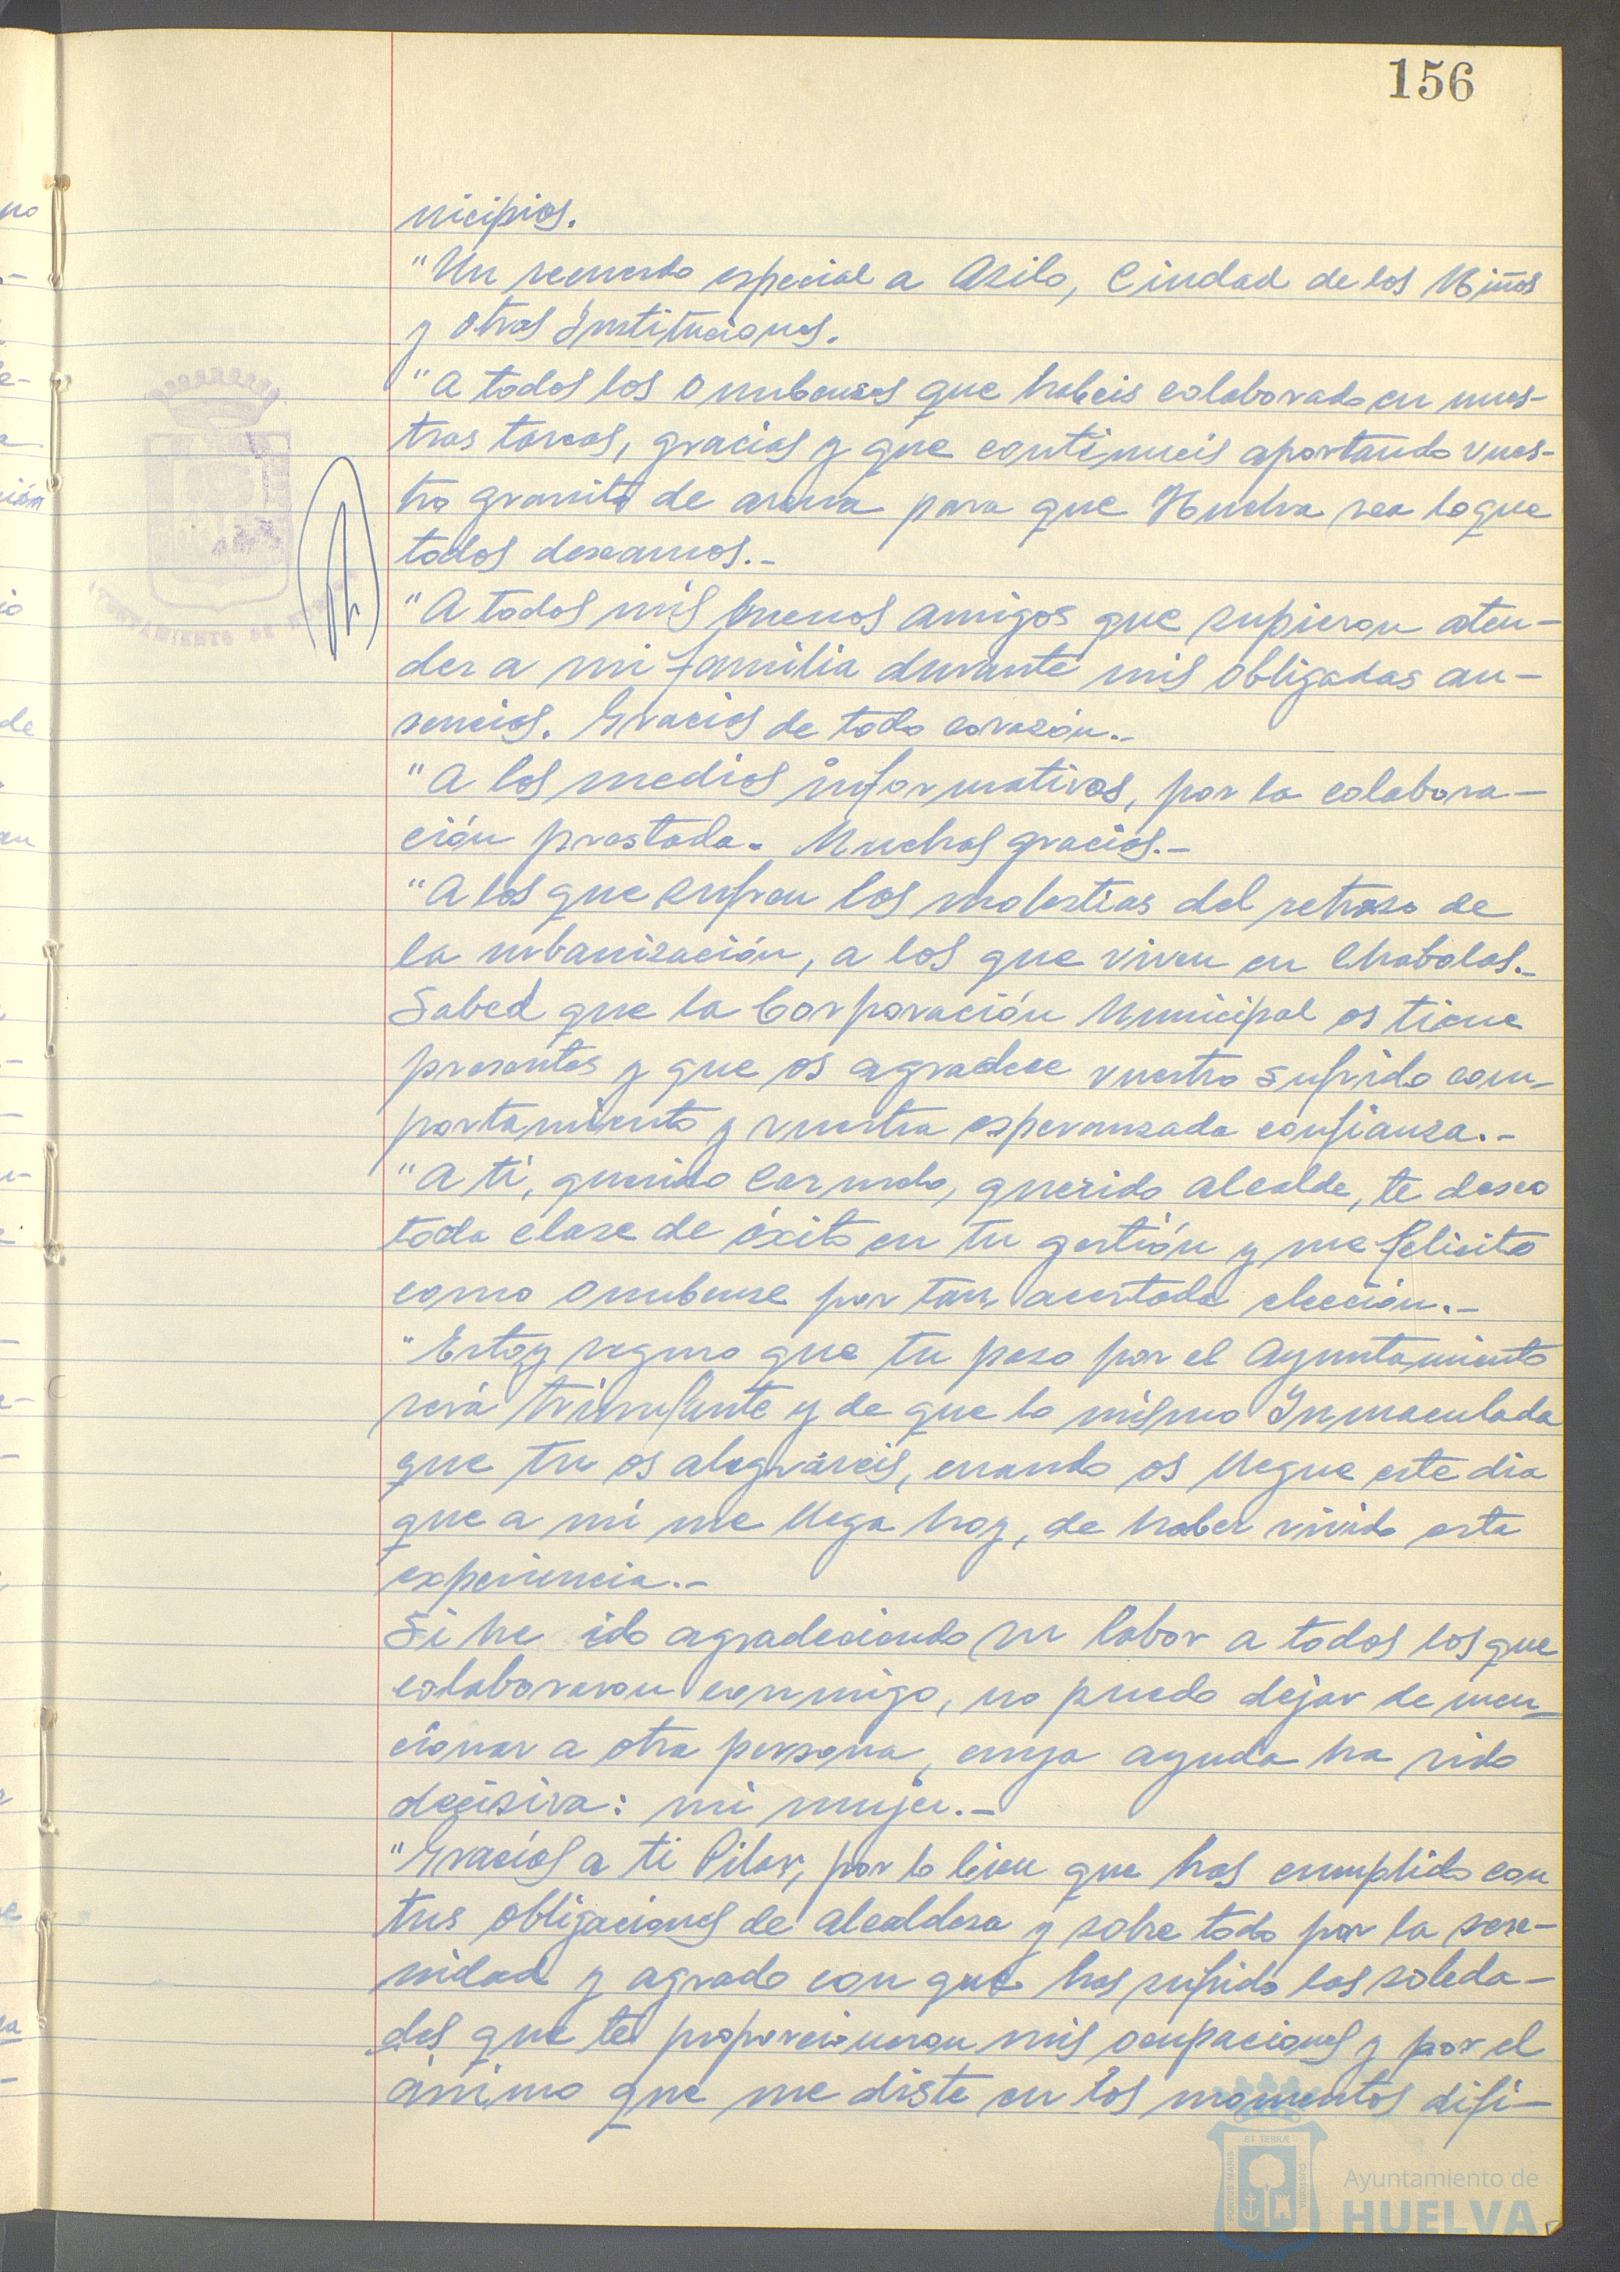 156
nicipios.
"Un recuerdo especial a Asilo, Ciudad de los Niños
y otras Instituciones.
"A todos los onubenses que habeis colaborado en nues-
tras tareas, gracias y que continueis aportando vues-
tro granito de arena para que Huelva sea lo que
todos deseamos.-
"A todos mis buenos amigos que supieron aten-
der a mi familia durante mis obligadas au-
sencias. Gracias de todo corazón.-
"A los medios informativos, por la colabora-
ción prestada. Muchas gracias.-
"A los que sufren las molestias del retraso de
la urbanización, a los que viven en Chabolas.-
Sabed que la Corporación Municipal os tiene
presentes y que os agradece vuestro sufrido com-
portamiento y vuestra esperanzada confianza.-
"A ti, querido Carmelo, querido alcalde, te deseo
toda clase de éxito en tu gestión y me felicito
como onubense por tan acertada elección.-
"Estoy seguro que tu paso por el Ayuntamiento
será triunfante y de que lo mismo Inmaculada
que tu os alegráreis, cuando os llegue este dia
que a mí me llega hoy, de haber vivido esta
experiencia.-
Si he ido agradeciendo su labor a todos los que
colaboraron conmigo, no puedo dejar de men-
cionar a otra persona, cuya ayuda ha sido
decisiva: mi mujer.-
"Gracias a ti Pilar, por lo bien que has cumplido con
tus obligaciones de alcaldesa y sobre todo por la sere-
nidad y agrado con que has sufrido las soleda-
des que te proporcionaron mis ocupaciones y por el
ánimo que me diste en los momentos difi-
AYUNTAMIENTO DE HUELVA
PORTUS MARIS ET TERRÆ CUSTODIA
Ayuntamiento de
HUELVA